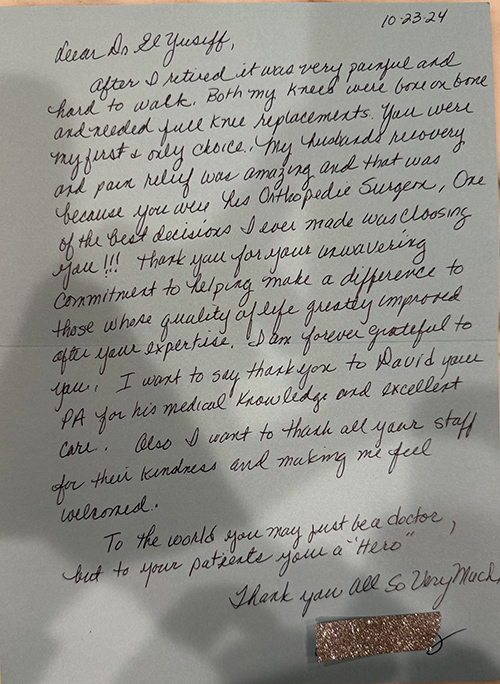 10-23-24
Dear Dr El Yusiff,
After I retired it was very painful and
hard to walk. Both my knees were bone on bone
and needed full knee replacements. You were
my first & only choice. My husbands recovery
and pain relief was amazing and that was
because you were his Orthopedic Surgeon, One
of the best decisions I ever made was choosing
you!!! Thank you for your unwavering
commitment to helping make a difference to
those whose quality of life greatly improved
after your expertise. I am forever grateful to
you. I want to say thank you to David your
PA for his medical knowledge and excellent
care. Also I want to thank all your staff
for their kindness and making me feel
welcomed.
To the world you may just be a doctor,
but to your patients your a "Hero"
Thank you All So Very Much,